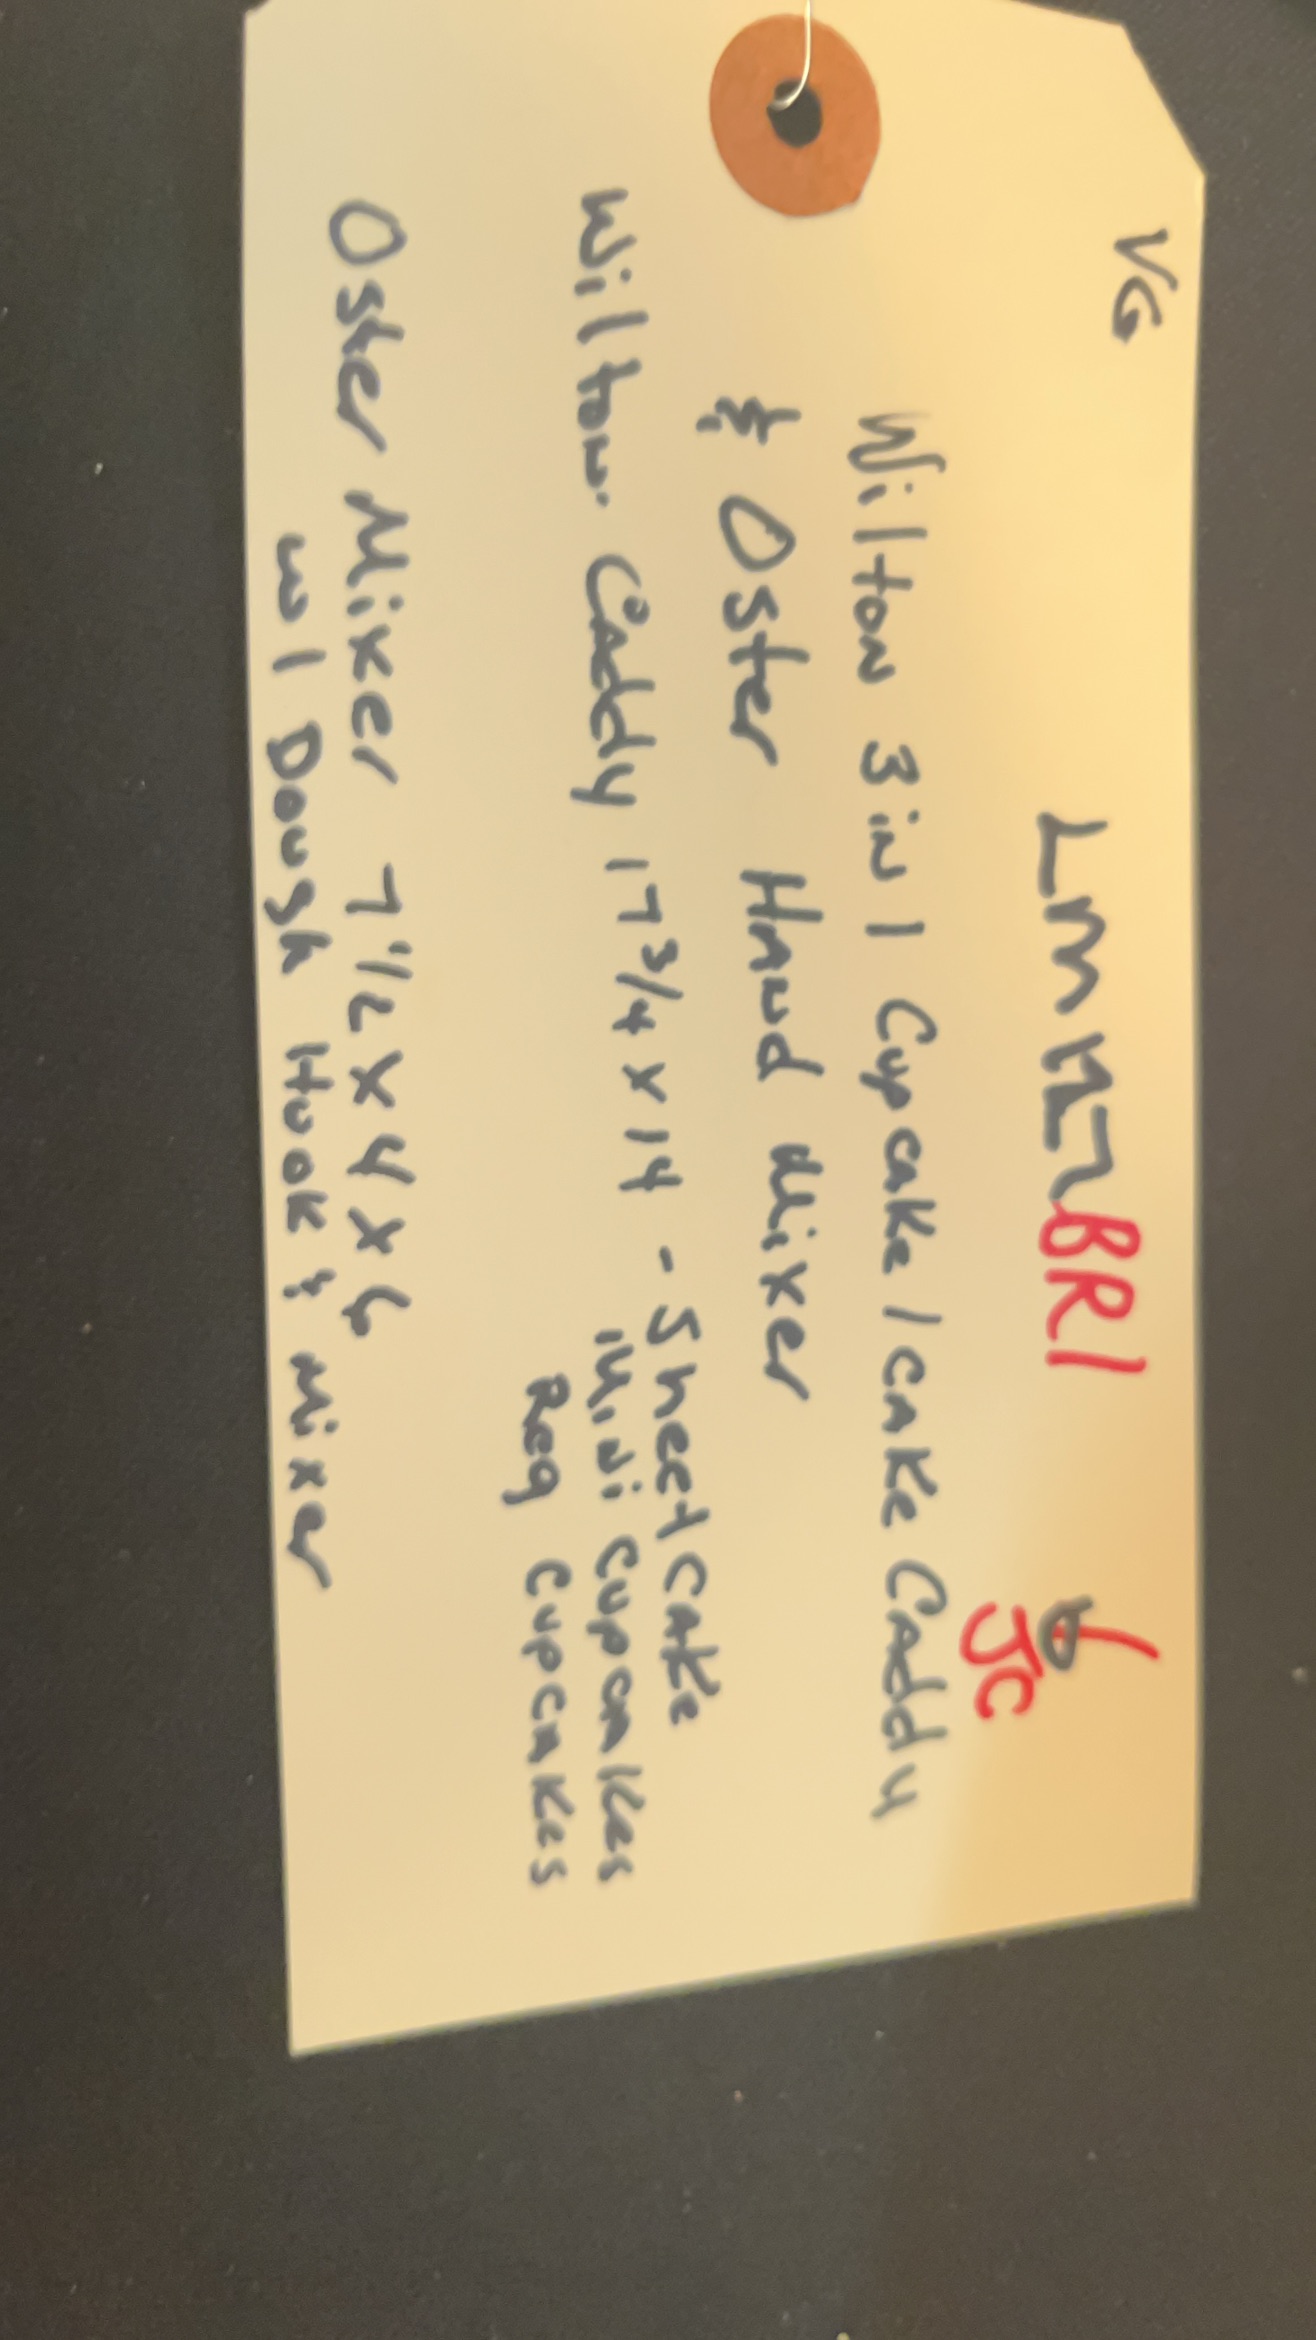 VG
BR1
JC
Wilton 3 in 1 Cupcake / cake Caddy
& Oster Hand Mixer
Wilton Caddy 17 3/4 x 14 - Sheet Cake
Mini Cupcakes
Reg Cupcakes
Oster Mixer 7 1/2 x 4 x 6
w/ Dough Hook & Mixer